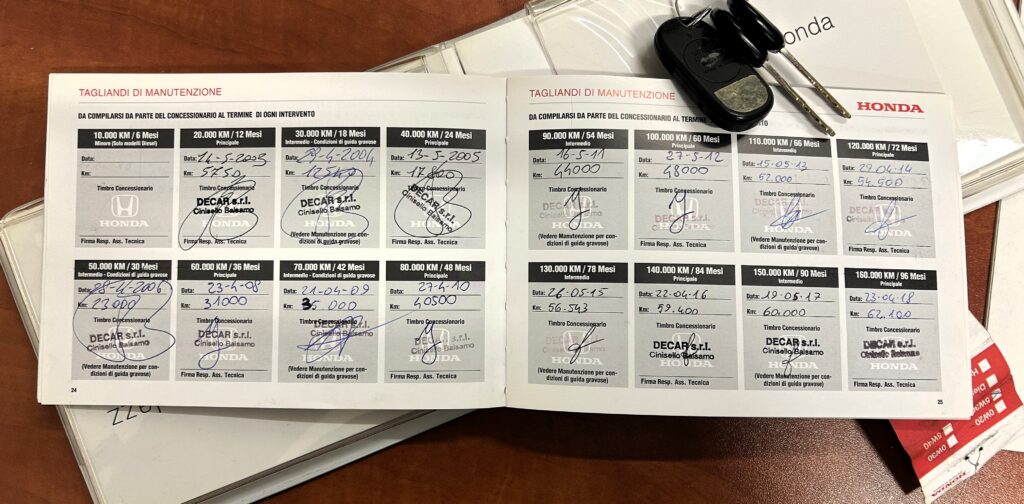 TAGLIANDI DI MANUTENZIONE
DA COMPILARSI DA PARTE DEL CONCESSIONARIO AL TERMINE DI OGNI INTERVENTO
10.000 KM / 6 Mesi
Minore (Solo modelli Diesel)
Data:
Km:
Timbro Concessionario
HONDA
Firma Resp. Ass. Tecnica
20.000 KM / 12 Mesi
Principale
Data: 14-5-2003
Km: 5750
Timbro Concessionario
DECAR s.r.l.
Cinisello Balsamo
HONDA
Firma Resp. Ass. Tecnica
30.000 KM / 18 Mesi
Intermedio - Condizioni di guida gravose
Data: 29-4-2004
Km: 12540
Timbro Concessionario
DECAR s.r.l.
Cinisello Balsamo
HONDA
(Vedere Manutenzione per con-
dizioni di guida gravose)
40.000 KM / 24 Mesi
Principale
Data: 13-5-2005
Km: 17.800
Timbro Concessionario
DECAR s.r.l.
Cinisello Balsamo
HONDA
Firma Resp. Ass. Tecnica
50.000 KM / 30 Mesi
Intermedio - Condizioni di guida gravose
Data: 28-4-2006
Km: 23000
Timbro Concessionario
DECAR s.r.l.
Cinisello Balsamo
HONDA
(Vedere Manutenzione per con-
dizioni di guida gravose)
60.000 KM / 36 Mesi
Principale
Data: 23-4-08
Km: 31000
Timbro Concessionario
DECAR s.r.l.
Cinisello Balsamo
HONDA
Firma Resp. Ass. Tecnica
70.000 KM / 42 Mesi
Intermedio - Condizioni di guida gravose
Data: 21-04-09
Km: 35.000
Timbro Concessionario
DECAR s.r.l.
Cinisello Balsamo
HONDA
(Vedere Manutenzione per con-
dizioni di guida gravose)
80.000 KM / 48 Mesi
Principale
Data: 27-4-10
Km: 40500
Timbro Concessionario
DECAR s.r.l.
Cinisello Balsamo
HONDA
Firma Resp. Ass. Tecnica
24
TAGLIANDI DI MANUTENZIONE
HONDA
DA COMPILARSI DA PARTE DEL CONCESSIONARIO AL TERMINE
90.000 KM / 54 Mesi
Intermedio
Data: 16-5-11
Km: 44000
Timbro Concessionario
HONDA
(Vedere Manutenzione per con-
dizioni di guida gravose)
100.000 KM / 60 Mesi
Principale
Data: 27-5-12
Km: 48000
Timbro Concessionario
HONDA
Firma Resp. Ass. Tecnica
110.000 KM / 66 Mesi
Intermedio
Data: 15.05.13
Km: 52.000
Timbro Concessionario
HONDA
(Vedere Manutenzione per con-
dizioni di guida gravose)
120.000 KM / 72 Mesi
Principale
Data: 29.04.14
Km: 54.500
Timbro Concessionario
HONDA
Firma Resp. Ass. Tecnica
130.000 KM / 78 Mesi
Intermedio
Data: 26-05-15
Km: 56.543
Timbro Concessionario
HONDA
(Vedere Manutenzione per con-
dizioni di guida gravose)
140.000 KM / 84 Mesi
Principale
Data: 22-04-16
Km: 59.400
Timbro Concessionario
DECAR s.r.l.
Cinisello Balsamo
HONDA
Firma Resp. Ass. Tecnica
150.000 KM / 90 Mesi
Intermedio
Data: 19-05-17
Km: 60.000
Timbro Concessionario
DECAR s.r.l.
Cinisello Balsamo
HONDA
(Vedere Manutenzione per con-
dizioni di guida gravose)
160.000 KM / 96 Mesi
Principale
Data: 23-04-18
Km: 62.100
Timbro Concessionario
DECAR s.r.l.
Cinisello Balsamo
HONDA
Firma Resp. Ass. Tecnica
25
onda
0W20
5W40
0W30